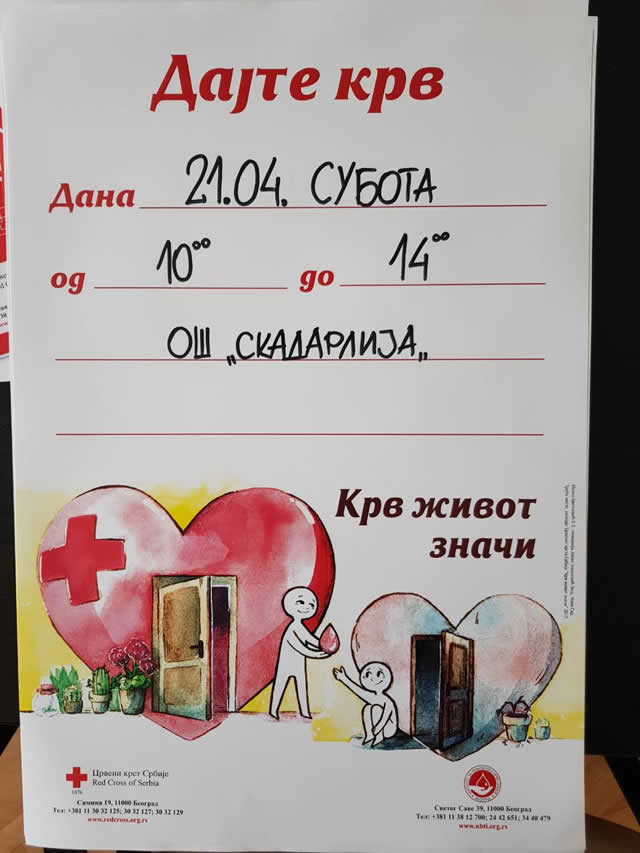 Дајте крв
Дана 21.04. СУБОТА
од 10°° до 14°°
ОШ „СКАДАРЛИЈА„
Крв живот
значи
1876
Црвени крст Србије
Red Cross of Serbia
Симина 19, 11000 Београд
Тел: +381 11 30 32 125; 30 32 127; 30 32 129
www.redcross.org.rs
Светог Саве 39, 11000 Београд
Тел: +381 11 38 12 700; 24 42 651; 34 40 479
www.nbti.org.rs